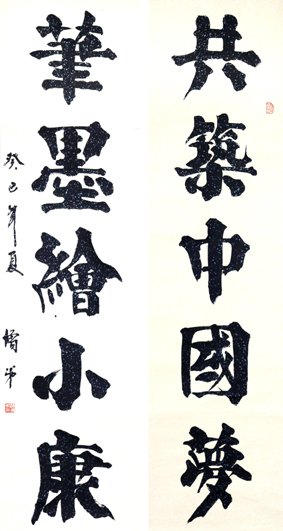 共築中國夢
筆墨繪小康
癸巳年夏